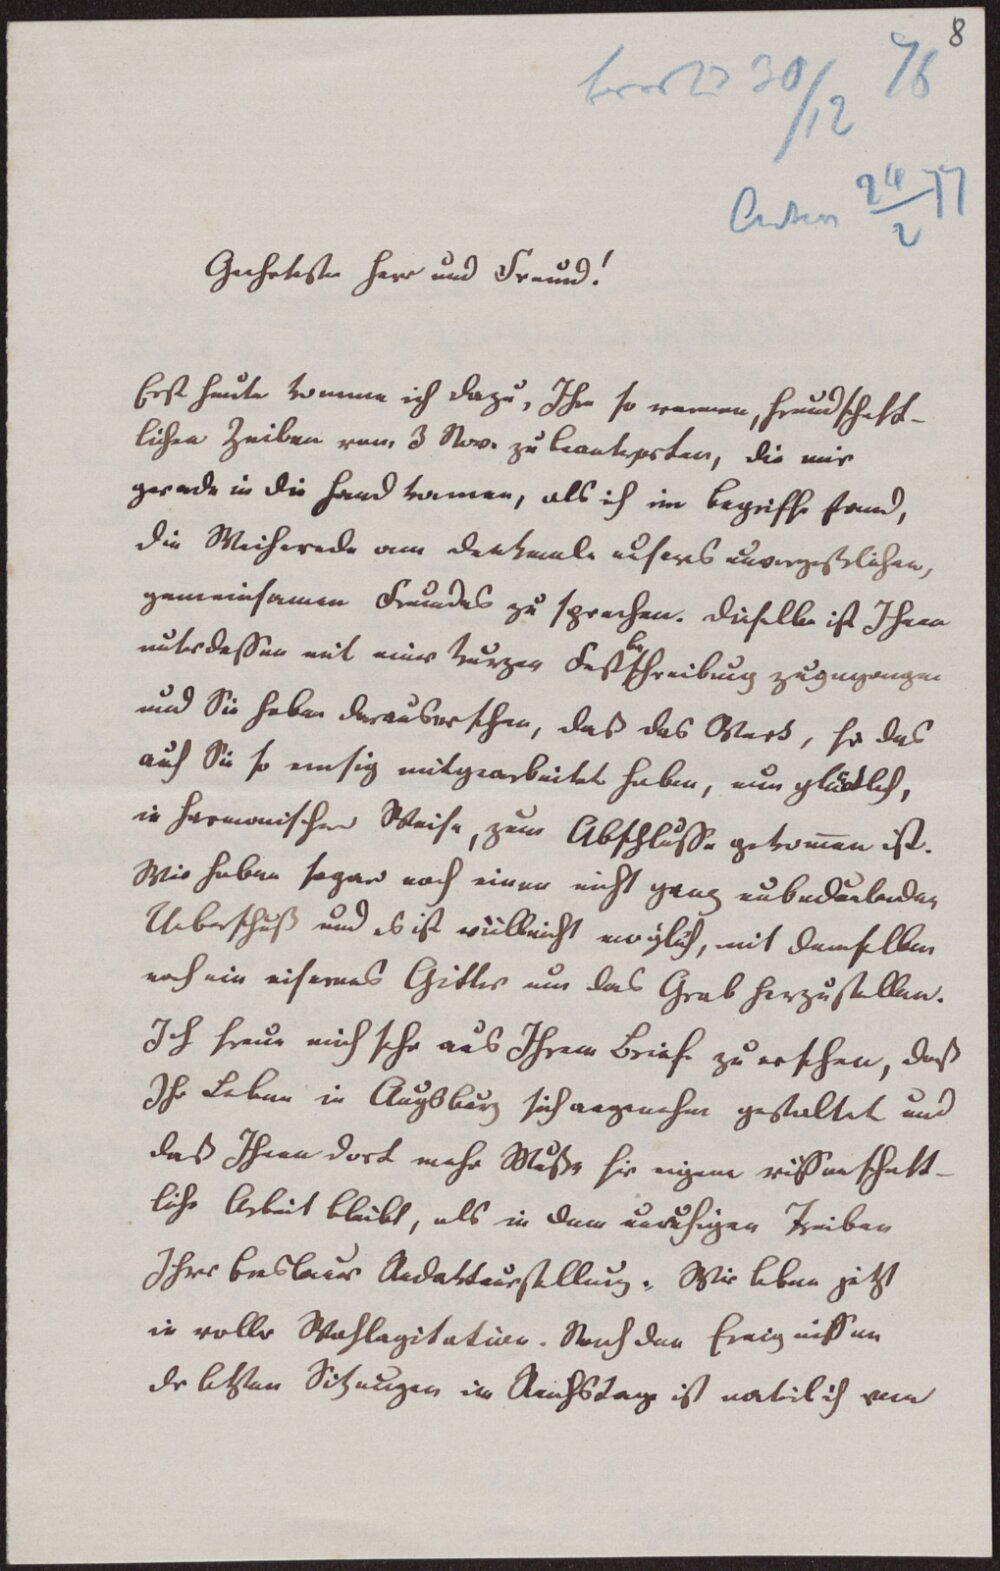 8
30/12 76
24/2 77
Geehrtester Herr und Freund!
Erst heute komme ich dazu, Ihre so warmen, freundschaft-
lichen Zeilen vom 3 Nov. zu beantworten, die mir
gerade in die Hand kamen, als ich im Begriffe stand,
die Weiherede am Denkmale unseres unvergeßlichen,
gemeinsamen Freundes zu sprechen. Dieselbe ist Ihnen
unterdessen mit einer kurzen Festbeschreibung zugegangen
und Sie haben daraus ersehen, daß das Werk, für das
auch Sie so emsig mitgearbeitet haben, nun glücklich,
in harmonischer Weise, zum Abschlusse gekommen ist.
Wir haben sogar noch einen nicht ganz unbedeutenden
Ueberschuß und es ist vielleicht möglich, mit demselben
noch ein eisernes Gitter um das Grab herzustellen.
Ich freue mich sehr aus Ihrem Briefe zu ersehen, daß
Ihr Leben in Augsburg sich angenehm gestaltet und
daß Ihnen dort mehr Muße für eigene wissenschaft-
liche Arbeit bleibt, als in dem unruhigen Treiben
Ihrer Breslauer Redakteurstellung. Wir leben jetzt
in voller Wahlagitation. Nach den Ereignissen
der letzten Sitzungen im Reichstage ist natürlich von